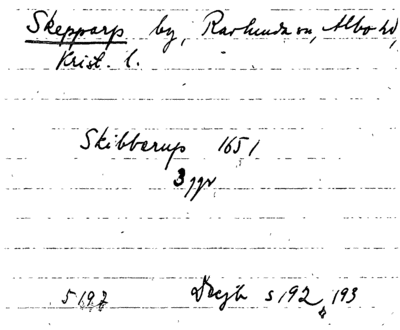 Skepparp by, Ravlunda sn, Albo hd,
Krist. l.
Skibberup 1651
3 ggr
5197 Dsjb s 192, 193